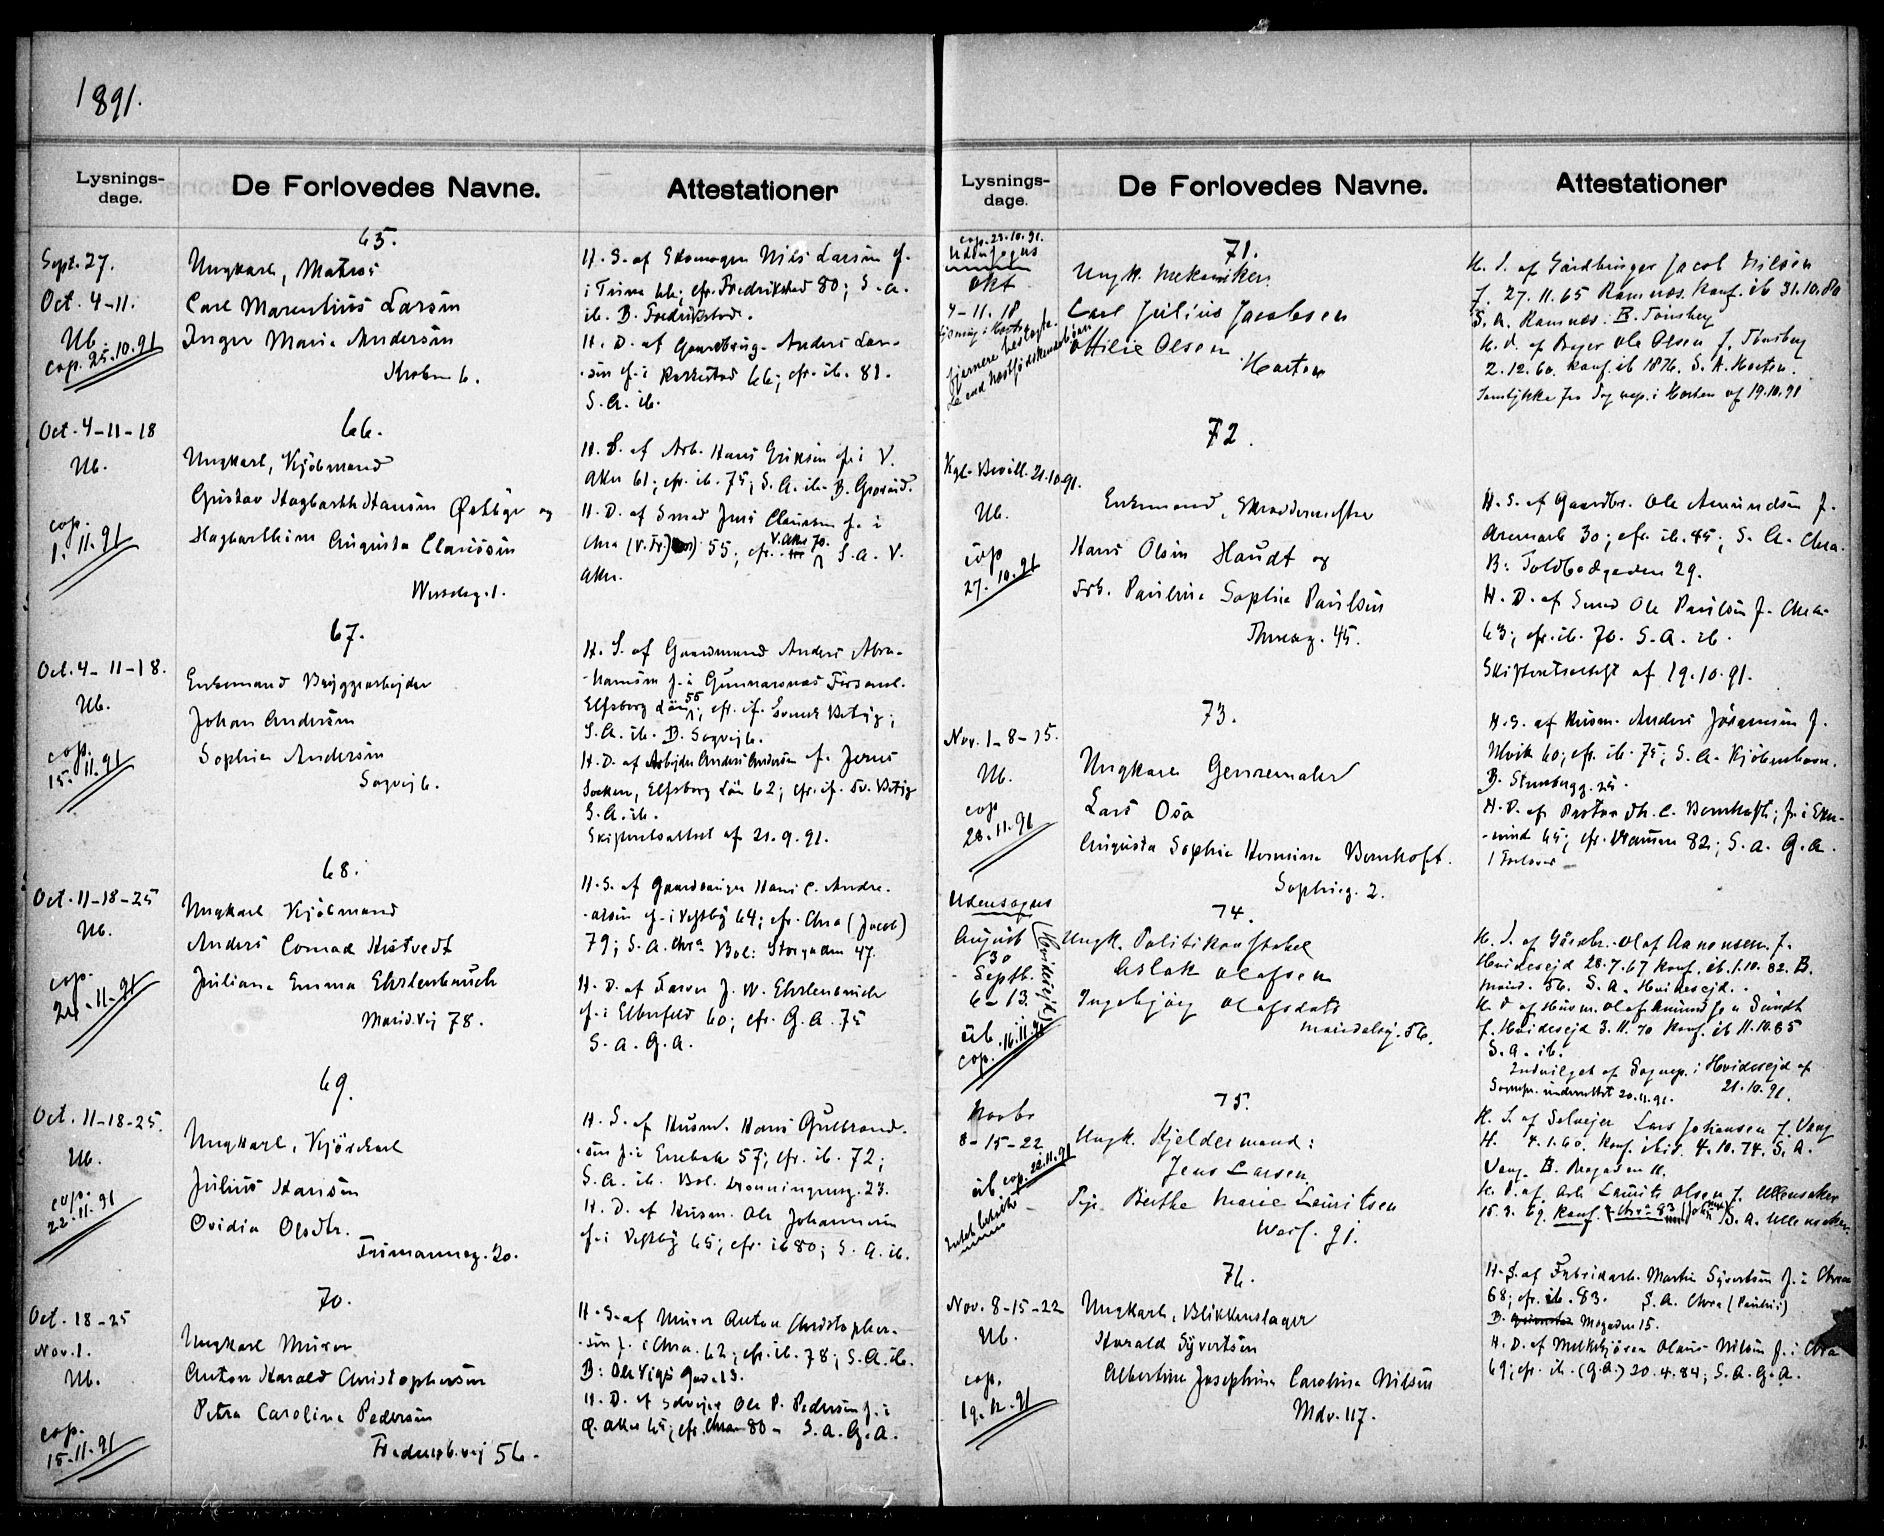 1891.
Lysnings-
dage.
De Forlovedes Navne.
Attestationer
65.
Sept. 27.
Oct. 4-11.
Ub.
cop. 25.10.91
Ungkarl, Matros
Carl Marentius Larsen
Inger Marie Andersen
H. S. af Skomager Nils Larsen f.
i Trina 66; cfr. Fredrikstad 80; S. a.
ib. B. Fredrikstad.
H. D. af Gaardbrug. Anders Lar-
-sen f. i Rakkestad 66; cfr. ib. 81.
S. A. ib.
66.
Oct. 4-11-18
Ub.
cop.
1. 11.91
Ungkarl, Kjøbmand
Gustav Hagbarth Hansen og
Hagbarthine Augusta Clausen
H. S. af Arb. Hans Eriksen f. i V.
Aker 61; cfr. ib. 75; S. A. ib. B.
H. D. af Smed Jens Clausen f. i
Chra (V. Fr.) 55; cfr. V. Aker 70. S. A. V.
Aker.
67.
Oct. 4-11-18.
Ub.
cop.
15. 11.91
Enkemand Bryggearbejder
Johan Andersen
Sophie Andersen
Sagvej 6.
H. S. af Gaardmand Anders Abra-
-hamsen f. i Gunnarsnäs Församl.
Elfsborg Län 55; cfr. if. Svensk Betyg;
S. A. ib. B. Sagvej 6.
H. D. af Arbejder Anders Andersen f.
Socken, Elfsborg Län 62; cfr. if. Sv. Betyg
S. A. ib.
Skifteretsattest af 21.9.91.
68.
Oct. 11-18-25
Ub.
cop.
24.-11.91
Ungkarl Kjøbmand
Anders Conrad Kistvedt
Juliane Emma Ehrlenbruch
Marid.vej 78.
H. S. af Gaardbruger Hans C. Andre-
-asen f. i Vestby 64; cfr. Chra (Jacob)
79; S. A. Chra Bol: Storgaden 47.
H. D. af Farver J. W. Ehrlenbruch
f. i Elberfeld 60; cfr. G. A. 75
S. a. G. a.
69.
Oct. 11-18-25.
Ub.
cop.
22.11.91
Ungkarl, Kjørekarl
Julius Hansen
Ovidia Olsdtr.
Frimanneg. 20.
H. S. af Husmd. Hans Gulbrand-
-sen f. i Enebak 57; cfr. ib. 72;
S. A. ib. Bol. Dronningensg. 23.
H. D. af Husm. Ole Johannesen
f. i Vestby 65; cfr. ib 80; S. A. ib.
70.
Oct. 18-25
Nov. 1.
Ub.
cop.
15.11.91
Ungkarl Murer
Anton Harald Christophersen
Petra Caroline Pedersen
Fredensb.vej 56.
H. S. af Murer Anton Christopher-
-sen f. i Chra. 62; cfr. ib. 78; S. A. ib.
B: Ole Vigs Gade 13.
H. D. af Selvejer Ole P. Pedersen f. i
Ø. Aker 65; cfr. Chra 80 - S. a. G. A.
Lysnings-
dage.
De Forlovedes Navne.
Attestationer
cop. 23.10.91.
Udensogns
Okt
4-11. 18
71.
Ungk. Mekaniker
Carl Julius Jacobsen
Ottilie Olsen
Horten
H. S. af Gårdbruger Jacob Nilsen
f. 27.11.65 Ramnæs. Konf. ib 31.10.80
S. A. Ramnæs. B. Tønsberg
H. D. af Bager Ole Olsen f. Tønsberg
2.12.60. konf. ib 1876. S. A. Horten.
Samtykke fra Sognep. i Horten af 19.10.91
72.
Kgl. Bevill. 21.10.91.
Ub.
cop
27.10.91
Enkemand, Skræddermester
Hans Olsen Haudt og
Frk. Pauline Sophie Paulsen
Thvesg. 45.
H. S. af Gaardbr. Ole Amundsen f.
Aremark 30; cfr. ib. 45; S. A. Chra.
B: Toldbodgaden 29.
H. D. af Smed Ole Paulsen f. Chra
63; cfr. ib. 70. S. A. ib.
Skifteretsattest af 19.10.91.
73.
Nov. 1-8-15.
Ub.
cop
28.11.91
Ungkarl Genremaler
Lars Osa
Augusta Sophie Hermine Bernhoft.
Sophieg. 2.
H. S. af Husm. Anders Jørgensen f.
Ulvik 60; cfr. ib. 75; S. A. Kjøbenhavn.
H. D. af Pastor Th. C. Bernhoft; f. i
65; cfr. 82; S. a. G. a.
1 Forlover
74.
Udensogns
August
30
Septb.
6-13.
(Hvidesejd)
ub.
cop. 16.11.91
Ungk. Politikonstabel
Aslak Olafsen
Ingebjørg Olafsdatt
Maridalsvj. 56.
H. S. af Gårdbr. Olaf Aanonsen f.
Hvidesejd 28.7.67 konf. ib. 1.10.82. B.
Marid. 56. S. A. Hvidesejd.
H. D af Husm. Olaf Amundsøn Sundt
f. Hvidesejd 3.11.70 konf. ib 11.10.85
S. A. ib.
Indvilget af Sognep. i Hvidesejd af
21.10.91.
Sognepr. underrettet 20.11.91.
75.
Novbr
8-15-22
ub cop. 22.11.91
Ungk. Kjeldermand:
Jens Larsen
Pige Berthe Marie Lauritsen
H. S. af Selvejer Lars Johansen f. Vang
H. 4.1.60. konf. ibid. 4.10.74. S. A.
Vang. B. Mogaden 11.
H. D. af Arb. Laurits Olsen f. Ullensaker
15.3.69. Konf. Chra 83 S. A. Ullensaker
76.
Nov. 8-15-22
Ub.
cop.
19.12.91
Ungkarl, Blikkenslager
Harald Syvertsen
Albertine Josephine Caroline Nilsen
Mdv. 117.
H. S. af Fabrikarb. Martin Syvertsen f. i Chra
68; cfr. ib. 83. S. A. Chra (Paulus)
B. Mogaden 15.
H. D. af Melkekjører Olaus Nilsen f. i Chra
69; cfr. ib. (G. A) 20.4.84; S. A. G. A.